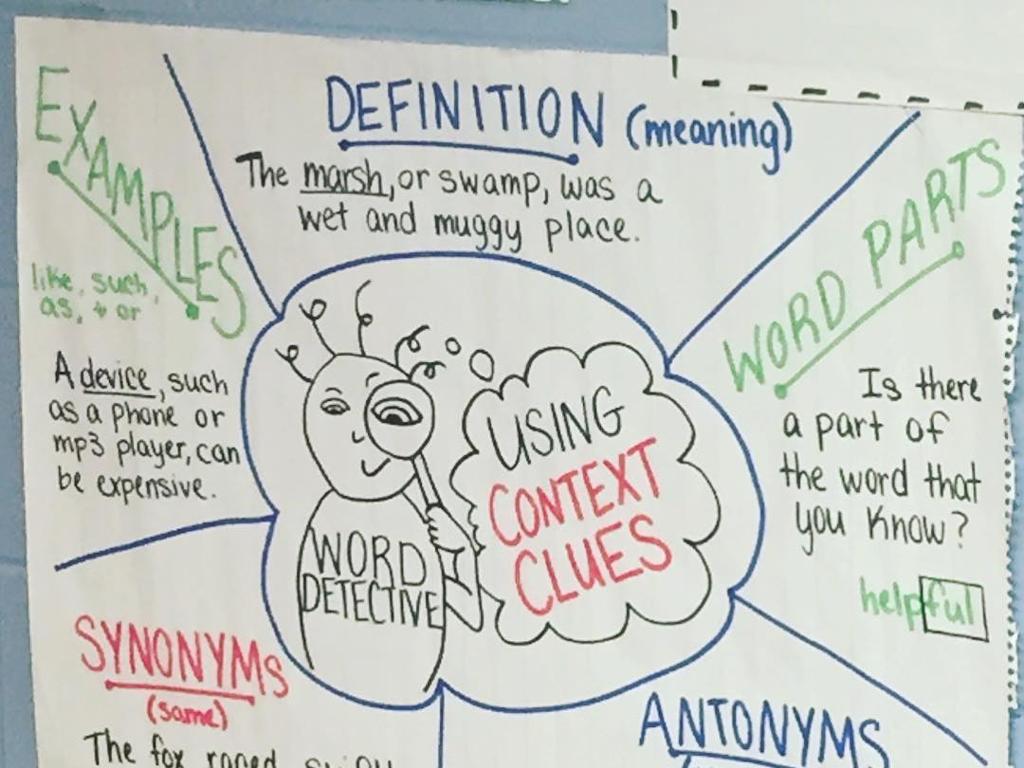 DEFINITION (meaning)
The marsh, or swamp, was a
wet and muggy place.
EXAMPLES
like, such
as, + or
A device, such
as a phone or
mp3 player, can
be expensive.
WORD PARTS
Is there
a part of
the word that
you know?
helpful
USING
CONTEXT
CLUES
WORD
DETECTIVE
SYNONYMS
(same)
The fox
ANTONYMS